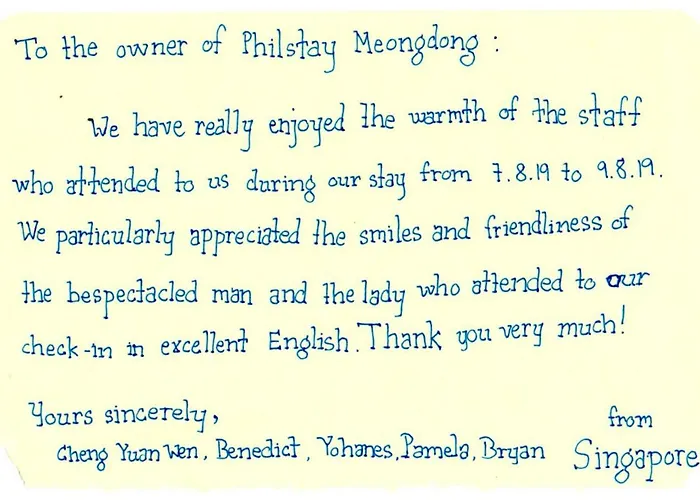 To the owner of Philstay Meongdong :
We have really enjoyed the warmth of the staff
who attended to us during our stay from 7.8.19 to 9.8.19.
We particularly appreciated the smiles and friendliness of
the bespectacled man and the lady who attended to our
check-in in excellent English. Thank you very much!
Yours sincerely,
Cheng Yuan Wen, Benedict, Yohanes, Pamela, Bryan
from
Singapore